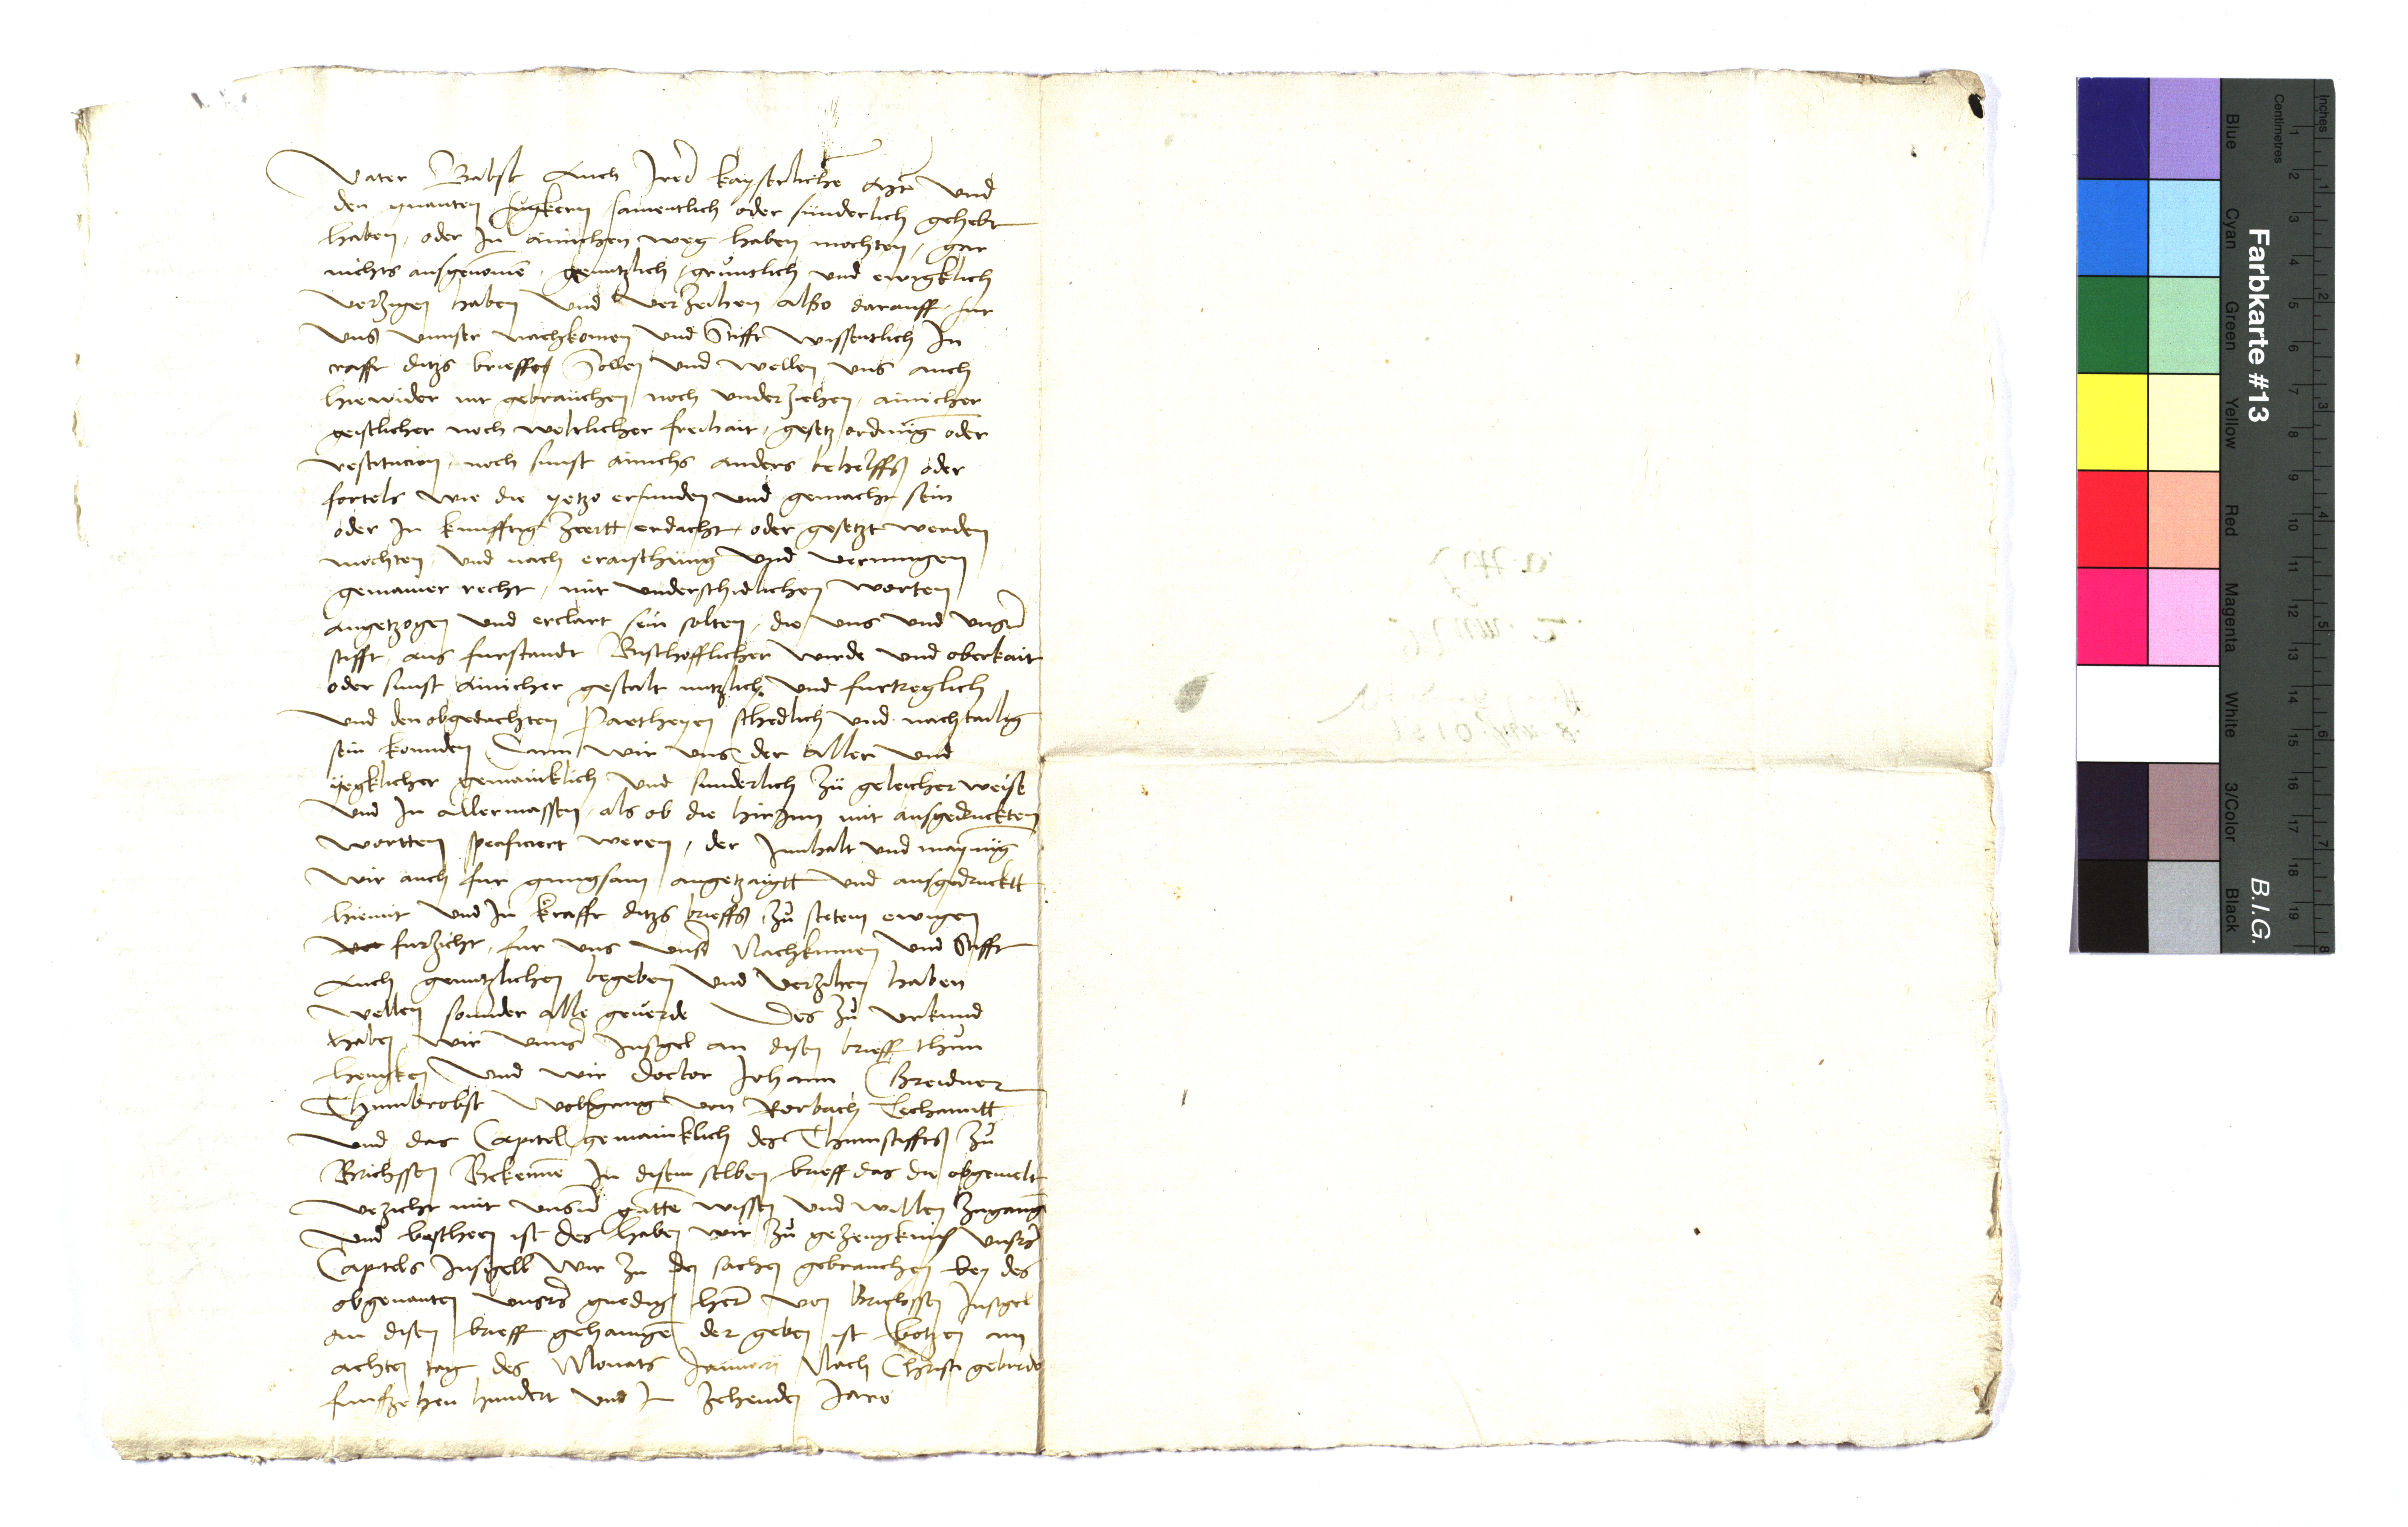 Vater Babst Auch Irer kayserlichen Mt und
den gnanten fugkern samentlich oder sünderlich gehebt
haben, oder In ainichen weg haben mochten, gar
nichts ausgenomen, genntzlich, gruntlich und ewigklich
verzigen haben und verzeihen also darauff, fur
uns unnser nachkomen und Stifft wissentlich In
crafft ditzs brieffes Sollen und wellen uns auch
hiewider nit gebrauchen noch underziehen, ainicher
geistlicher noch weltlicher freihait, gesetz ordnung oder
restitucion, noch sunst ainichs anders behelffs oder
fortels wie die yetzo erfunden und gemacht sein
oder In kunfftig Zeitt erdacht, oder gesetzt werden
mochten, und nach eraischung und vermugen
gemainer recht, mit underschidlichen worten
angetzogen und erclart sein solten, die uns und unser
stifft aus furstandt Bischofflicher wirde und oberkait
oder sunst ainicher gestalt nutzlich und furtreglich
und den obgedachten Partheyen schedlich und nachtailig
sein konnden Dann wir uns der aller und
yegklicher gemainklich und sunderlich zü geleicher weise
und In allermassen, als ob die hirInn mit ausgedruckten
wortten specificiert weren, der Innhalt und maynung
wir auch fur gnugsam angetzaigtt und ausgedrucktt
hiemit und In krafft ditzs brieffs zu stetem ewigen
ver furzicht, fur uns unser Nachkumen und Stifft
Auch genntzlichen begeben und verzihen haben
wellen sonnder alle geverde Des zu urkund
haben wir unnser Insigel an disen brieff thun
hengken Und wir doctor Johann Greidner
Thumbrobst Wolfgang von Rorbach Techanntt
und das Capitel gemainklich des Thumstiffts zu
Brichssen Bekennen In disem selben brieff das die obgemelt
verzicht mit unserm gutten wissen und willen zugangen
und beschehen ist des haben wir zu gezeugknus unsers
Capitels Insigell wir zu den sachen gebrauchen bey des
obgenanten unsers gnedigen hern von Brichssen Insigel
an disen brieff gehanngen der geben ist Botzen am
achten tag des Monats Januarii Nach Christi geburde
funffzehen hundert und In zehenden Jare